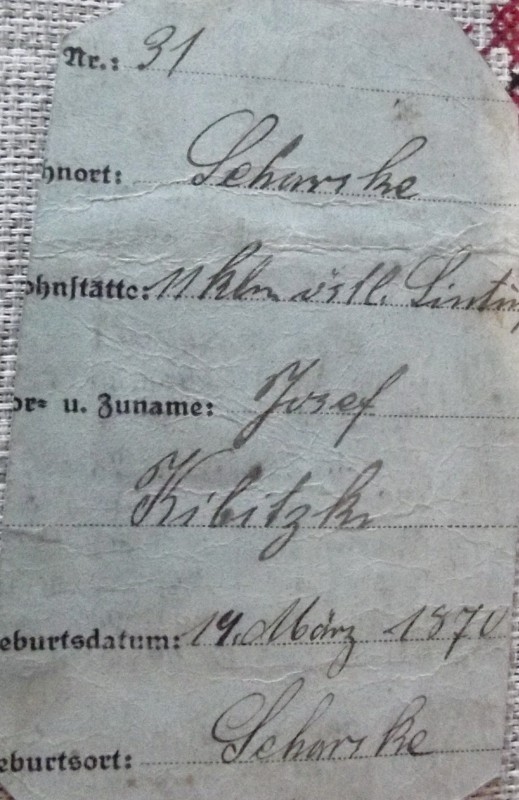 Nr.: 31
hnort: Scharske
ohnstätte: 11 klm östl. Lintu
or= u. Zuname: Josef
Kibitzki
eburtsdatum: 14. März 1870
eburtsort: Scharske